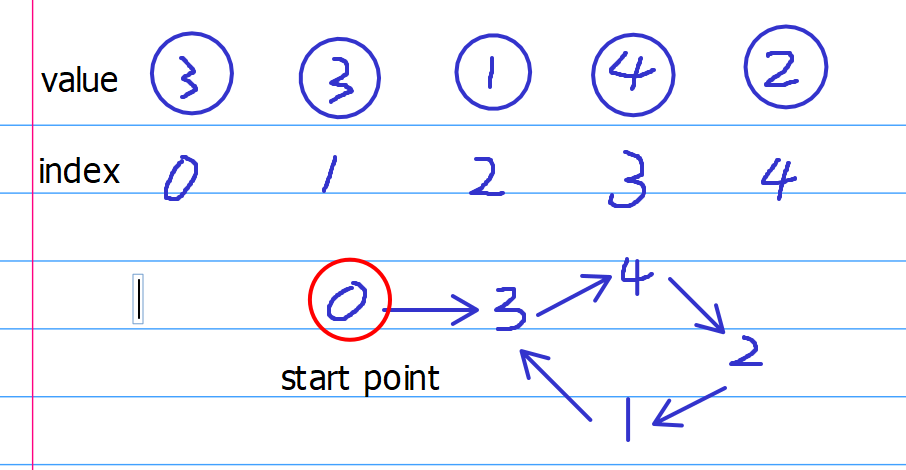 value 3 3 1 4 2
index 0 1 2 3 4
0 3 4
2
start point
1